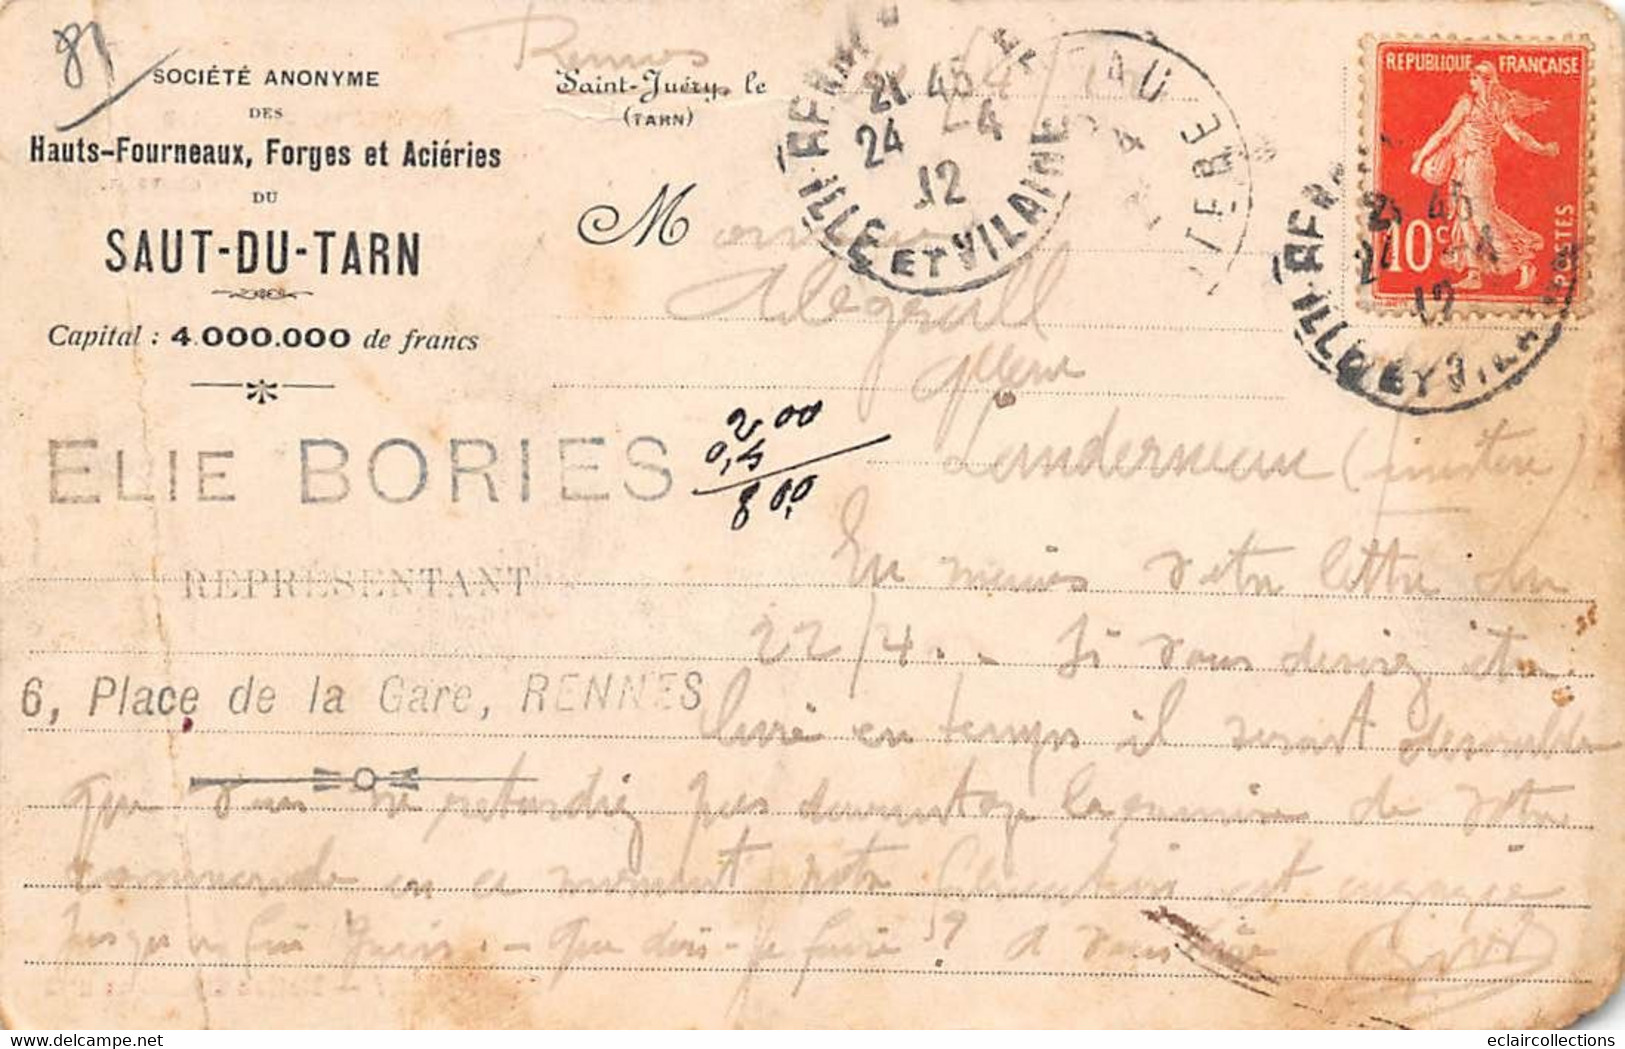 81
SOCIÉTÉ ANONYME
DES
Hauts-Fourneaux, Forges et Aciéries
DU
SAUT-DU-TARN
Capital : 4.000.000 de francs
ELIE BORIES
REPRÉSENTANT
6, Place de la Gare, RENNES
Rennes
Saint-Juéry, le
(TARN)
21 45
24 -4
12
ILLE ET VILAINE
RÉPUBLIQUE FRANÇAISE
10 c
POSTES
21 45
24 -4
12
Monsieur
Landerneau (Finistère)
2 00
8 00
En mains votre lettre du
22/4. - Si vous désirez être
livré en temps il serait désirable
que vous ne retardiez pas davantage la remise de votre
commande en ce moment notre fabrication est engagée
jusqu'en fin Juin. - Que dois-je faire ? A vous lire
eclaircollections
www.delcampe.net